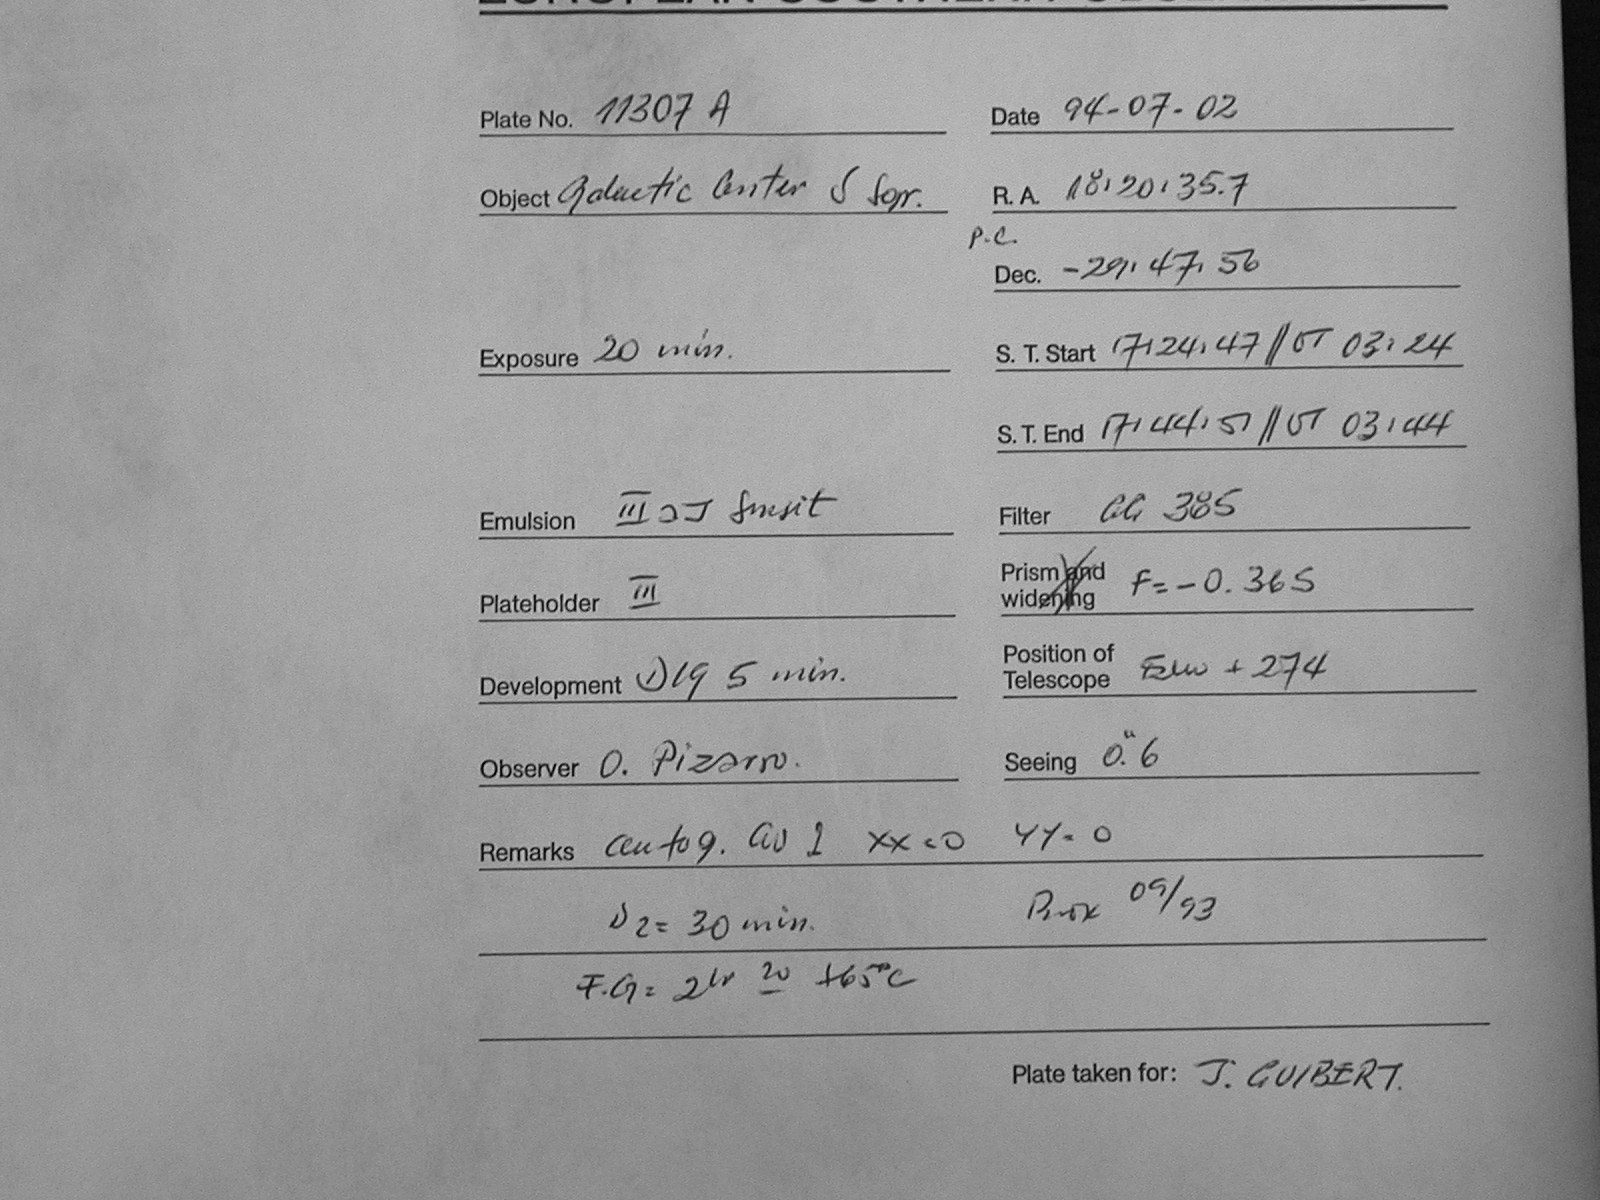 EUROPEAN SOUTHERN OBSERVATORY
Plate No. 11307 A Date 94-07-02
Object Galactic Center S R.A. 18:20:35.7
P.C.
Dec. -29: 47: 56
Exposure 20 min. S. T. Start 17:24:47 // UT 03:24
S. T. End 17:44:51 // UT 03:44
Emulsion III aJ Filter GG 385
Plateholder III Prism and widening F= -0.365
Development D19 5 min. Position of Telescope + 274
Observer O. Pizarro. Seeing 0."6
Remarks XX=0 YY=0
2= 30 min. 09/93
F.G= 2hr 20 +65°C
Plate taken for: J. GUIBERT.